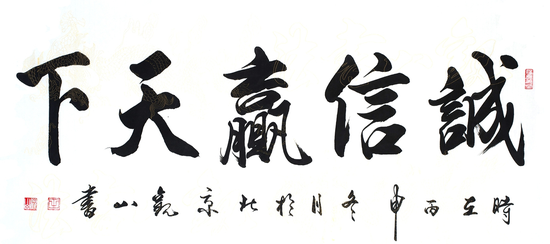 誠信贏天下
時在丙申冬月於北京觀山書